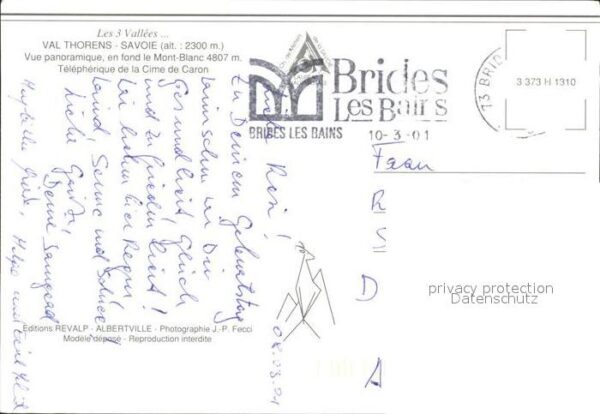 Les 3 Vallées ...
VAL THORENS - SAVOIE (alt. : 2300 m.)
Vue panoramique, en fond le Mont-Blanc 4807 m.
Téléphérique de la Cime de Caron
Brides
Les Bains
BRIDES LES BAINS
10-3-01
73 BRID
3 373 H 1310
Rosi!
Zu Deinem Geburtstag
wünschen wir Dir
Gesundheit, Glück
und Zufriedenheit!
Wir haben hier Regen
Wind, Sonne und Schnee!
Liebe Grüße,
Deine
08.03.01
Frau
privacy protection
Datenschutz
Editions REVALP - ALBERTVILLE - Photographie J.-P. Fecci
Modèle déposé - Reproduction interdite